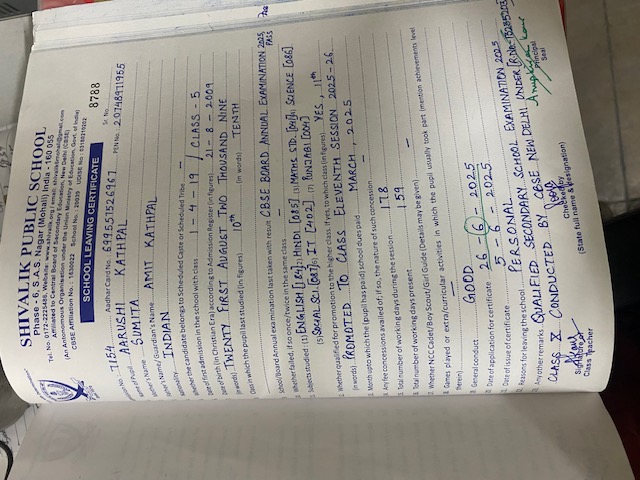 SHIVALIK PUBLIC SCHOOL
Phase - 6, S.A.S. Nagar (Mohali) India - 160 055
Affiliated to Central Board of Secondary Education, New Delhi (CBSE)
(An Autonomous Organisation under the Union Ministry of Education, Govt. of India)
CBSE Affiliation No. : 1630022 School No. 20939
SCHOOL LEAVING CERTIFICATE
Sr. No. 8788
No. 7154 Aadhar Card No. 699551526967 PEN No. 20748911955
of Pupil AARUSHI KATHPAL
Mother's Name SUMITA
Father's Name/ Guardian's Name AMIT KATHPAL
Nationality INDIAN
Whether the candidate belongs to Scheduled Caste or Scheduled Tribe —
Date of first admission in the school with class 1-4-19 / CLASS-5
Date of birth (in Christian Era) according to Admission Register (in figures) 21-8-2009
(in words) TWENTY FIRST AUGUST TWO THOUSAND NINE
Class in which the pupil last studied (in figures) 10th (in words) TENTH
School/Board Annual examination last taken with result CBSE BOARD ANNUAL EXAMINATION 2025, PASS
Whether failed, if so once/twice in the same class —
Subjects studied (1) ENGLISH [184] (2) HINDI [085] (3) MATHS STD. [041] (4) SCIENCE [086]
(5) SOCIAL SCI [087] (6) IT [402] (7) PUNJABI [004]
Whether qualified for promotion to the higher class. If yes, to which class (in figures) YES, 11th
(in words) PROMOTED TO CLASS ELEVENTH SESSION 2025-26
Month upto which the (pupil has paid) school dues paid MARCH, 2025
Any fee concessions availed of, if so, the nature of such concession —
Total number of working days during the session 178
Total number of working days present 159
Whether NCC Cadet/Boy Scout/Girl Guide (Details may be given) —
Games played or extra/curricular activities in which, the pupil usually took part (mention achievements level
therein) —
General conduct GOOD
Date of application for certificate 26-6-2025
Date of issue of certificate 5-6-2025
Reasons for leaving the school PERSONAL
Any other remarks QUALIFIED SECONDARY SCHOOL EXAMINATION 2025
CLASS X CONDUCTED BY CBSE NEW DELHI UNDER
Signature of
Class Teacher
Checked by
(State full name & designation)
Principal
Seal